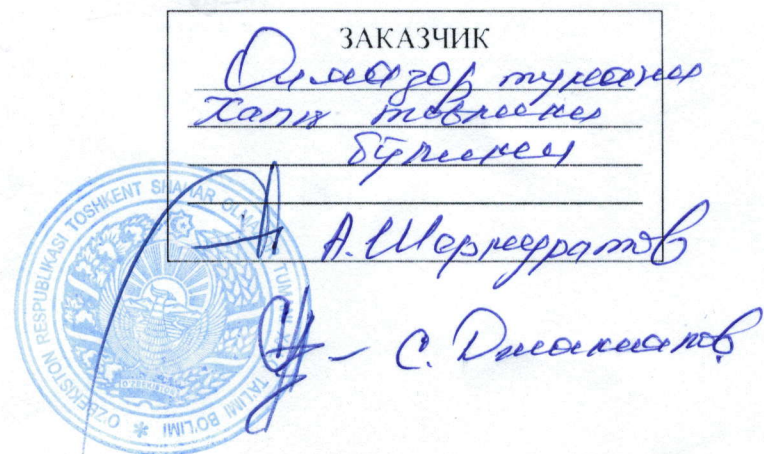 ЗАКАЗЧИК
Олмазор тумани
Халқ таълими
бўлими
А. Шермуратов
С. Джаманов
O'ZBEKISTON RESPUBLIKASI TOSHKENT SHAHAR OLMAZOR TUMANI TA'LIMI BO'LIMI
O'ZBEKISTON